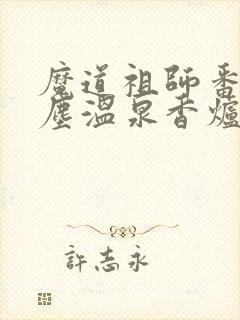 魔道祖師番
塵溫泉香爐
許志永